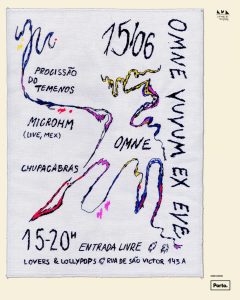 15/06
OMNE VUVUM EX EVE
PROCISSÃO
DO
TEMENOS
MICROHM
(LIVE, MEX)
OMNE
CHUPACABRAS
15-20H
ENTRADA LIVRE
LOVERS & LOLLYPOPS RUA DE SÃO VICTOR 143A
Porto.